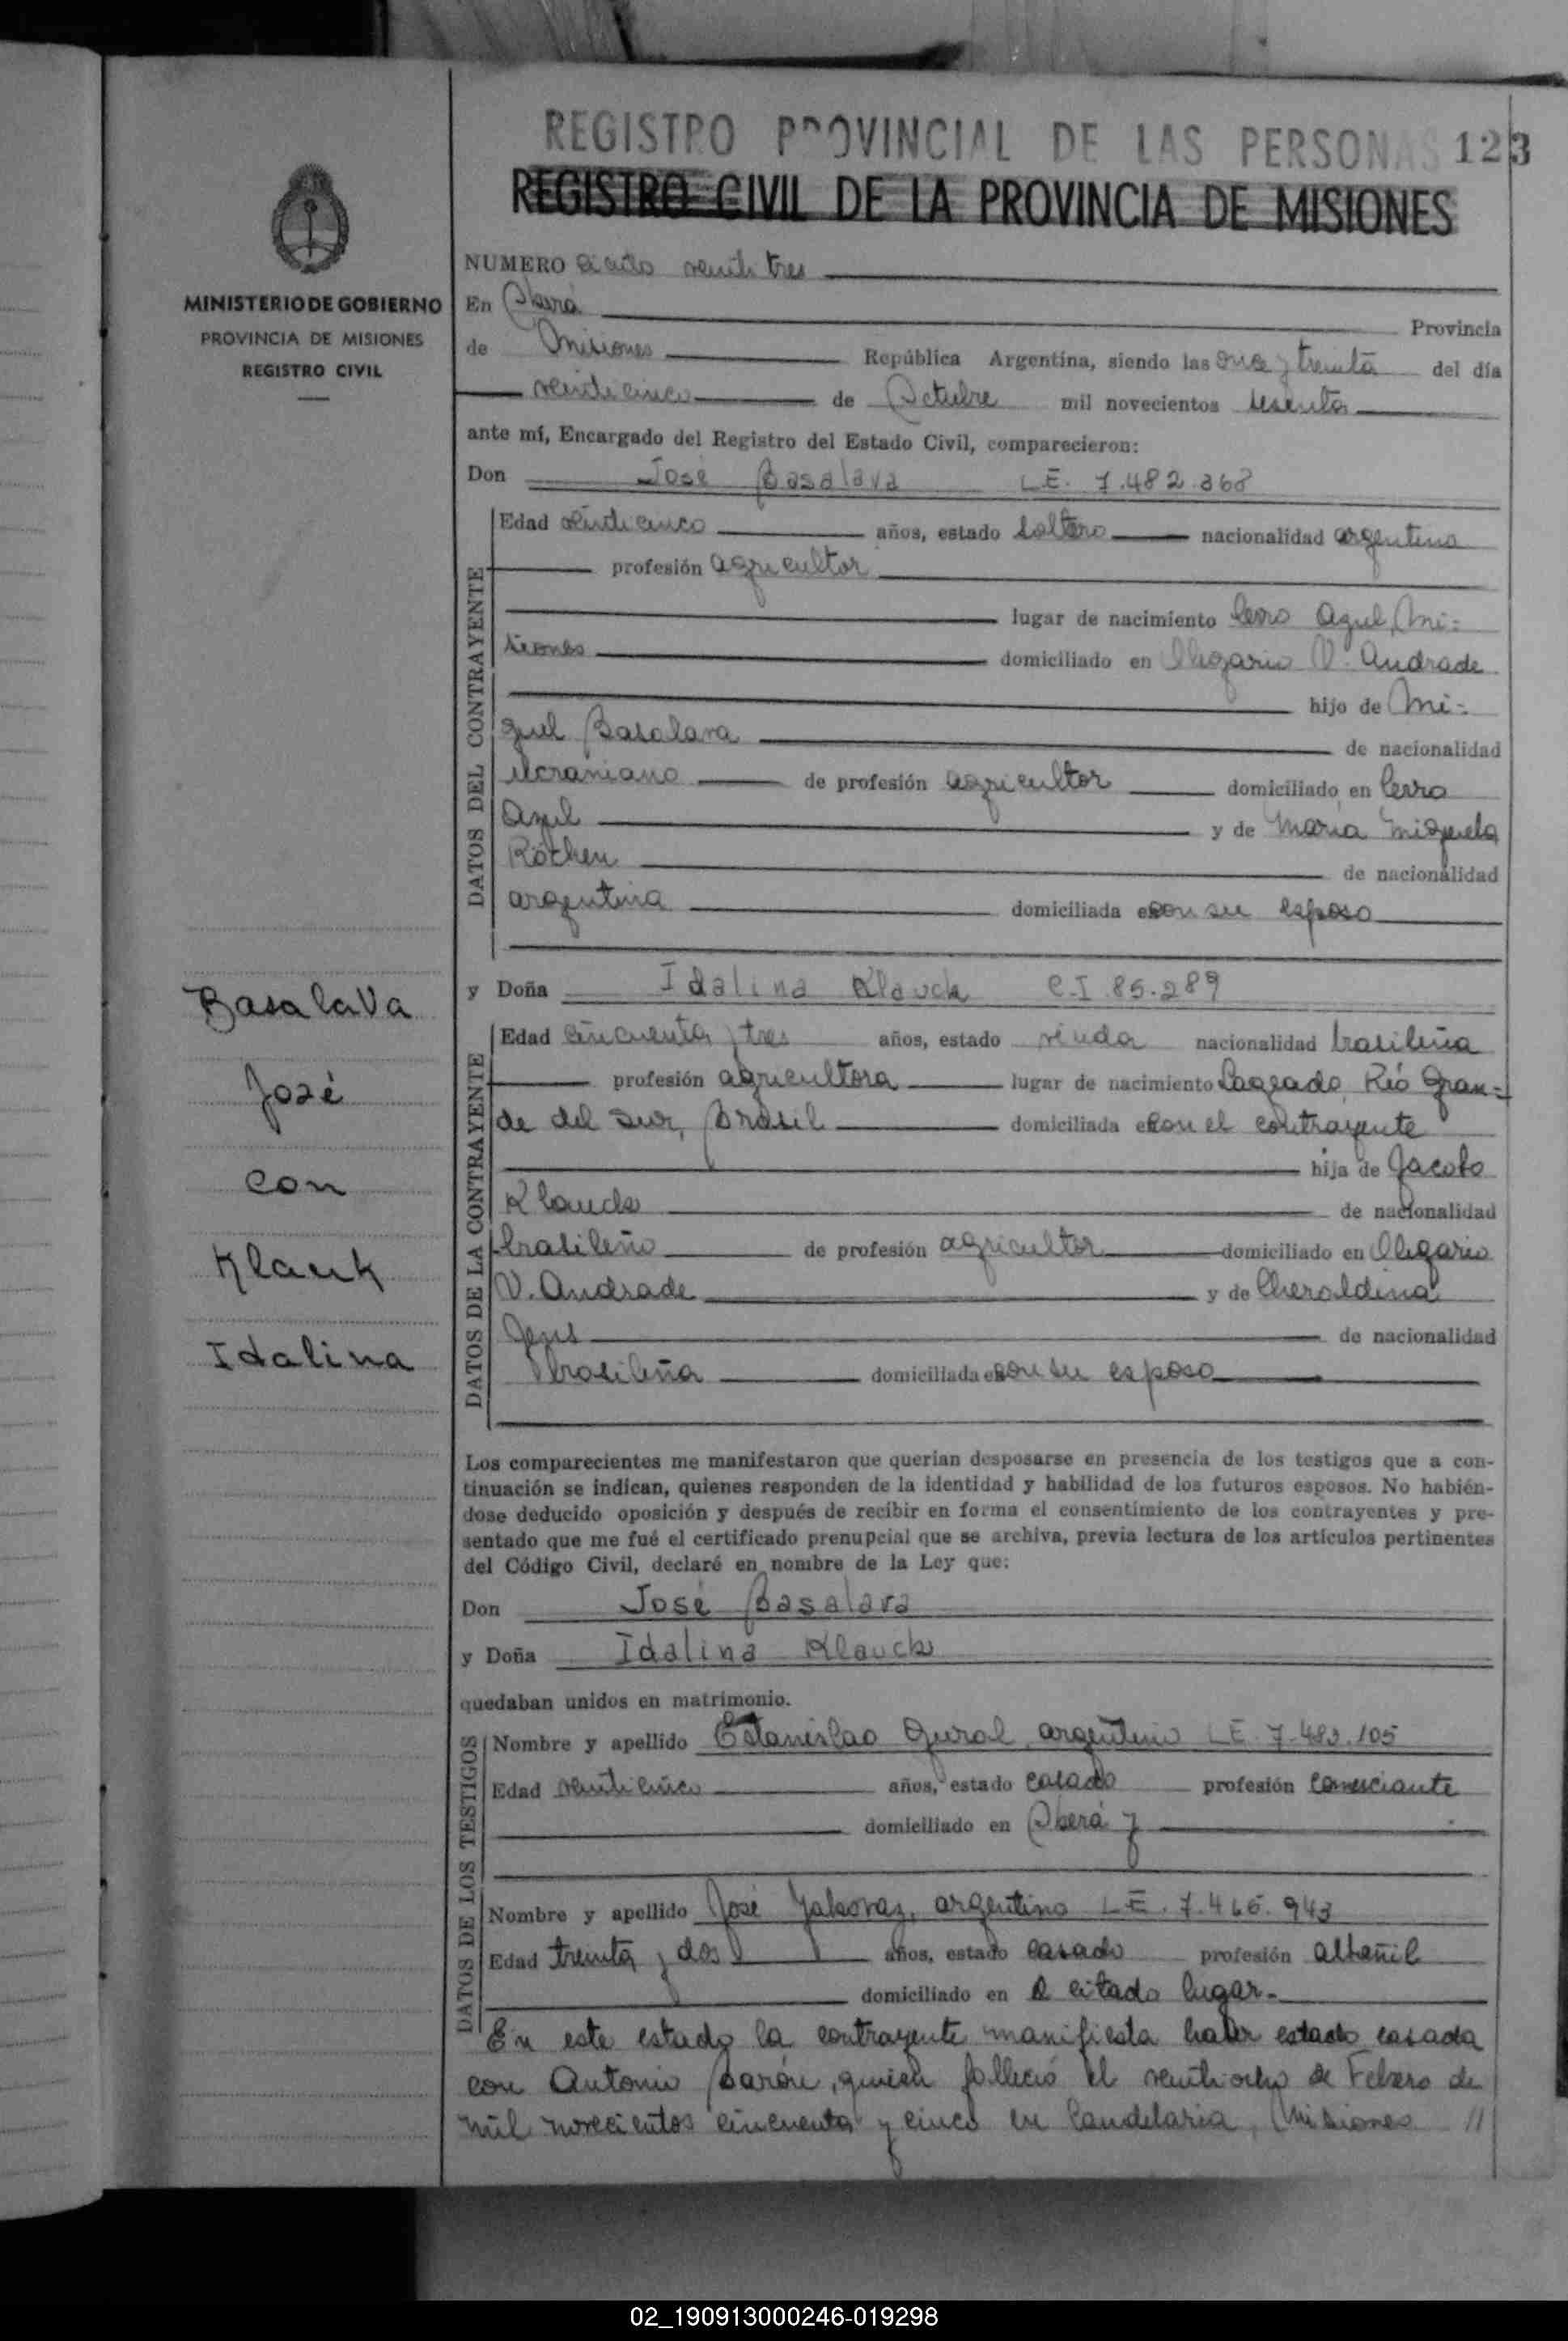 REGISTRO PROVINCIAL DE LAS PERSONAS 123
REGISTRO CIVIL DE LA PROVINCIA DE MISIONES
MINISTERIO DE GOBIERNO
PROVINCIA DE MISIONES
REGISTRO CIVIL
NUMERO ciento veinti tres
En Oberá Provincia
de Misiones República Argentina, siendo las once y treinta del día
veinticinco de Octubre mil novecientos sesenta
ante mí, Encargado del Registro del Estado Civil, comparecieron:
Don José Basalava L.E. 7.482.368
DATOS DEL CONTRAYENTE
Edad veinticinco años, estado soltero nacionalidad argentina
profesión agricultor
lugar de nacimiento Cerro Azul, Mi=
siones domiciliado en Olegario V. Andrade
hijo de Mi=
guel Basalava de nacionalidad
ucraniano de profesión agricultor domiciliado en Cerro
Azul y de María Miguela
Röthen de nacionalidad
argentina domiciliada en con su esposo
y Doña Idalina Klauck C.I 85.289
Basalava
José
con
Klauk
Idalina
DATOS DE LA CONTRAYENTE
Edad cincuenta y tres años, estado viuda nacionalidad brasileña
profesión agricultora lugar de nacimiento Lageado, Río Gran=
de del Sur, Brasil domiciliada en con el contrayente
hija de Jacobo
Klauck de nacionalidad
brasileño de profesión agricultor domiciliado en Olegario
V. Andrade y de Cheraldina
de nacionalidad
brasileña domiciliada en con su esposo
Los comparecientes me manifestaron que querían desposarse en presencia de los testigos que a con-
tinuación se indican, quienes responden de la identidad y habilidad de los futuros esposos. No habién-
dose deducido oposición y después de recibir en forma el consentimiento de los contrayentes y pre-
sentado que me fué el certificado prenupcial que se archiva, previa lectura de los artículos pertinentes
del Código Civil, declaré en nombre de la Ley que:
Don José Basalava
y Doña Idalina Klauck
quedaban unidos en matrimonio.
DATOS DE LOS TESTIGOS
Nombre y apellido Estanislao Gural, argentino L.E. 7.483.105
Edad veinticinco años, estado casado profesión comerciante
domiciliado en Oberá y
Nombre y apellido José argentino L.E. 7.466.943
Edad treinta y dos años, estado casado profesión albañil
domiciliado en el citado lugar.
En este estado la contrayente manifiesta haber estado casada
con Antonio Barón, quien falleció el veintiocho de Febrero de
mil novecientos cincuenta y cinco en Candelaria, Misiones //
02_190913000246-019298